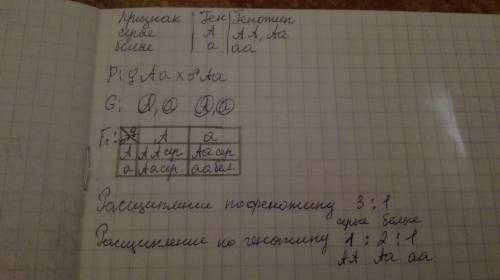 Признак | Ген | Генотип
серые | А | АА, Аа
белые | а | аа
Р: ♀ Аа х ♂ Аа
G: А, а А, а
F₁: ♀ ♂ | А | а
А | АА сер. | Аа сер
а | Аа сер. | аа бел.
Расщипление по фенотипу 3 : 1
серые белые
Расщипление по генотипу 1 : 2 : 1
АА Аа аа